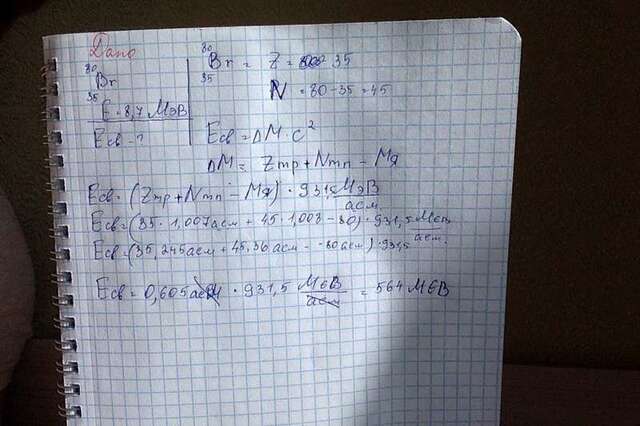 Дано
80
Br
35
E = 8,7 МэВ
Eсв - ?
80
Br = Z = 35
35
N = 80 - 35 = 45
Eсв = ΔM · c²
ΔM = Zmp + Nmn - Mя
Eсв = (Zmp + Nmn - Mя) · 931,5 МэВ/аем
Eсв = (35 · 1,007 аем + 45 · 1,008 - 80) · 931,5 МєВ/аем
Eсв = (35,245 аем + 45,36 аем - 80 аем) · 931,5
Eсв = 0,605 аем · 931,5 МєВ/аем = 564 МєВ